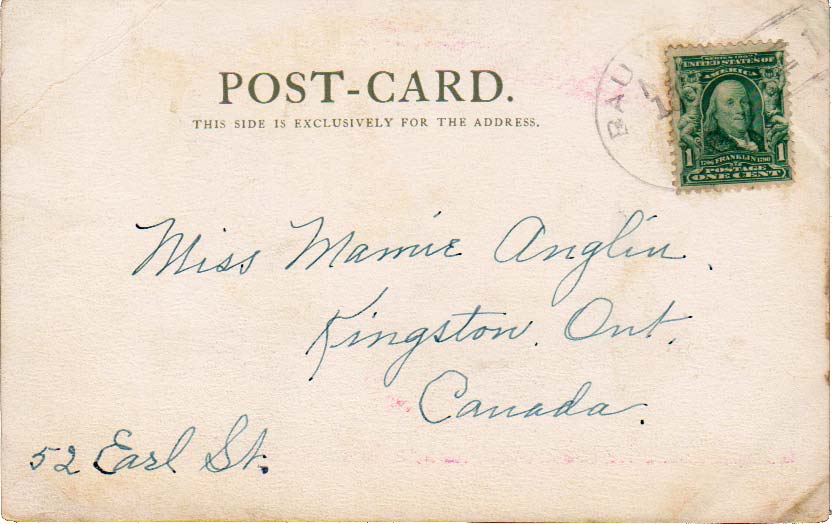 POST-CARD.
THIS SIDE IS EXCLUSIVELY FOR THE ADDRESS.
BAU
SERIES 1902
UNITED STATES OF
AMERICA
1 1
1706 FRANKLIN 1790
POSTAGE
ONE CENT
Miss Mamie Anglin.
Kingston. Ont.
Canada.
52 Earl St.